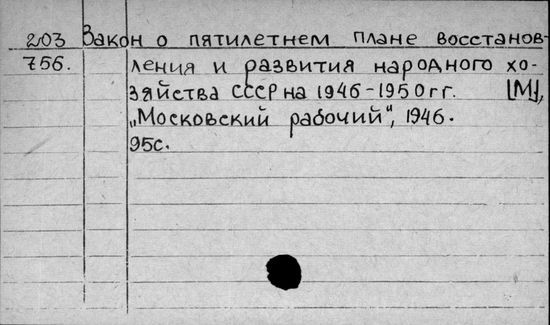 203 Закон о пятилетнем плане восстанов-
756. ления и развития народного хо-
зяйства СССР на 1946-1950гг. [М],
„Московский рабочий", 1946.
95с.